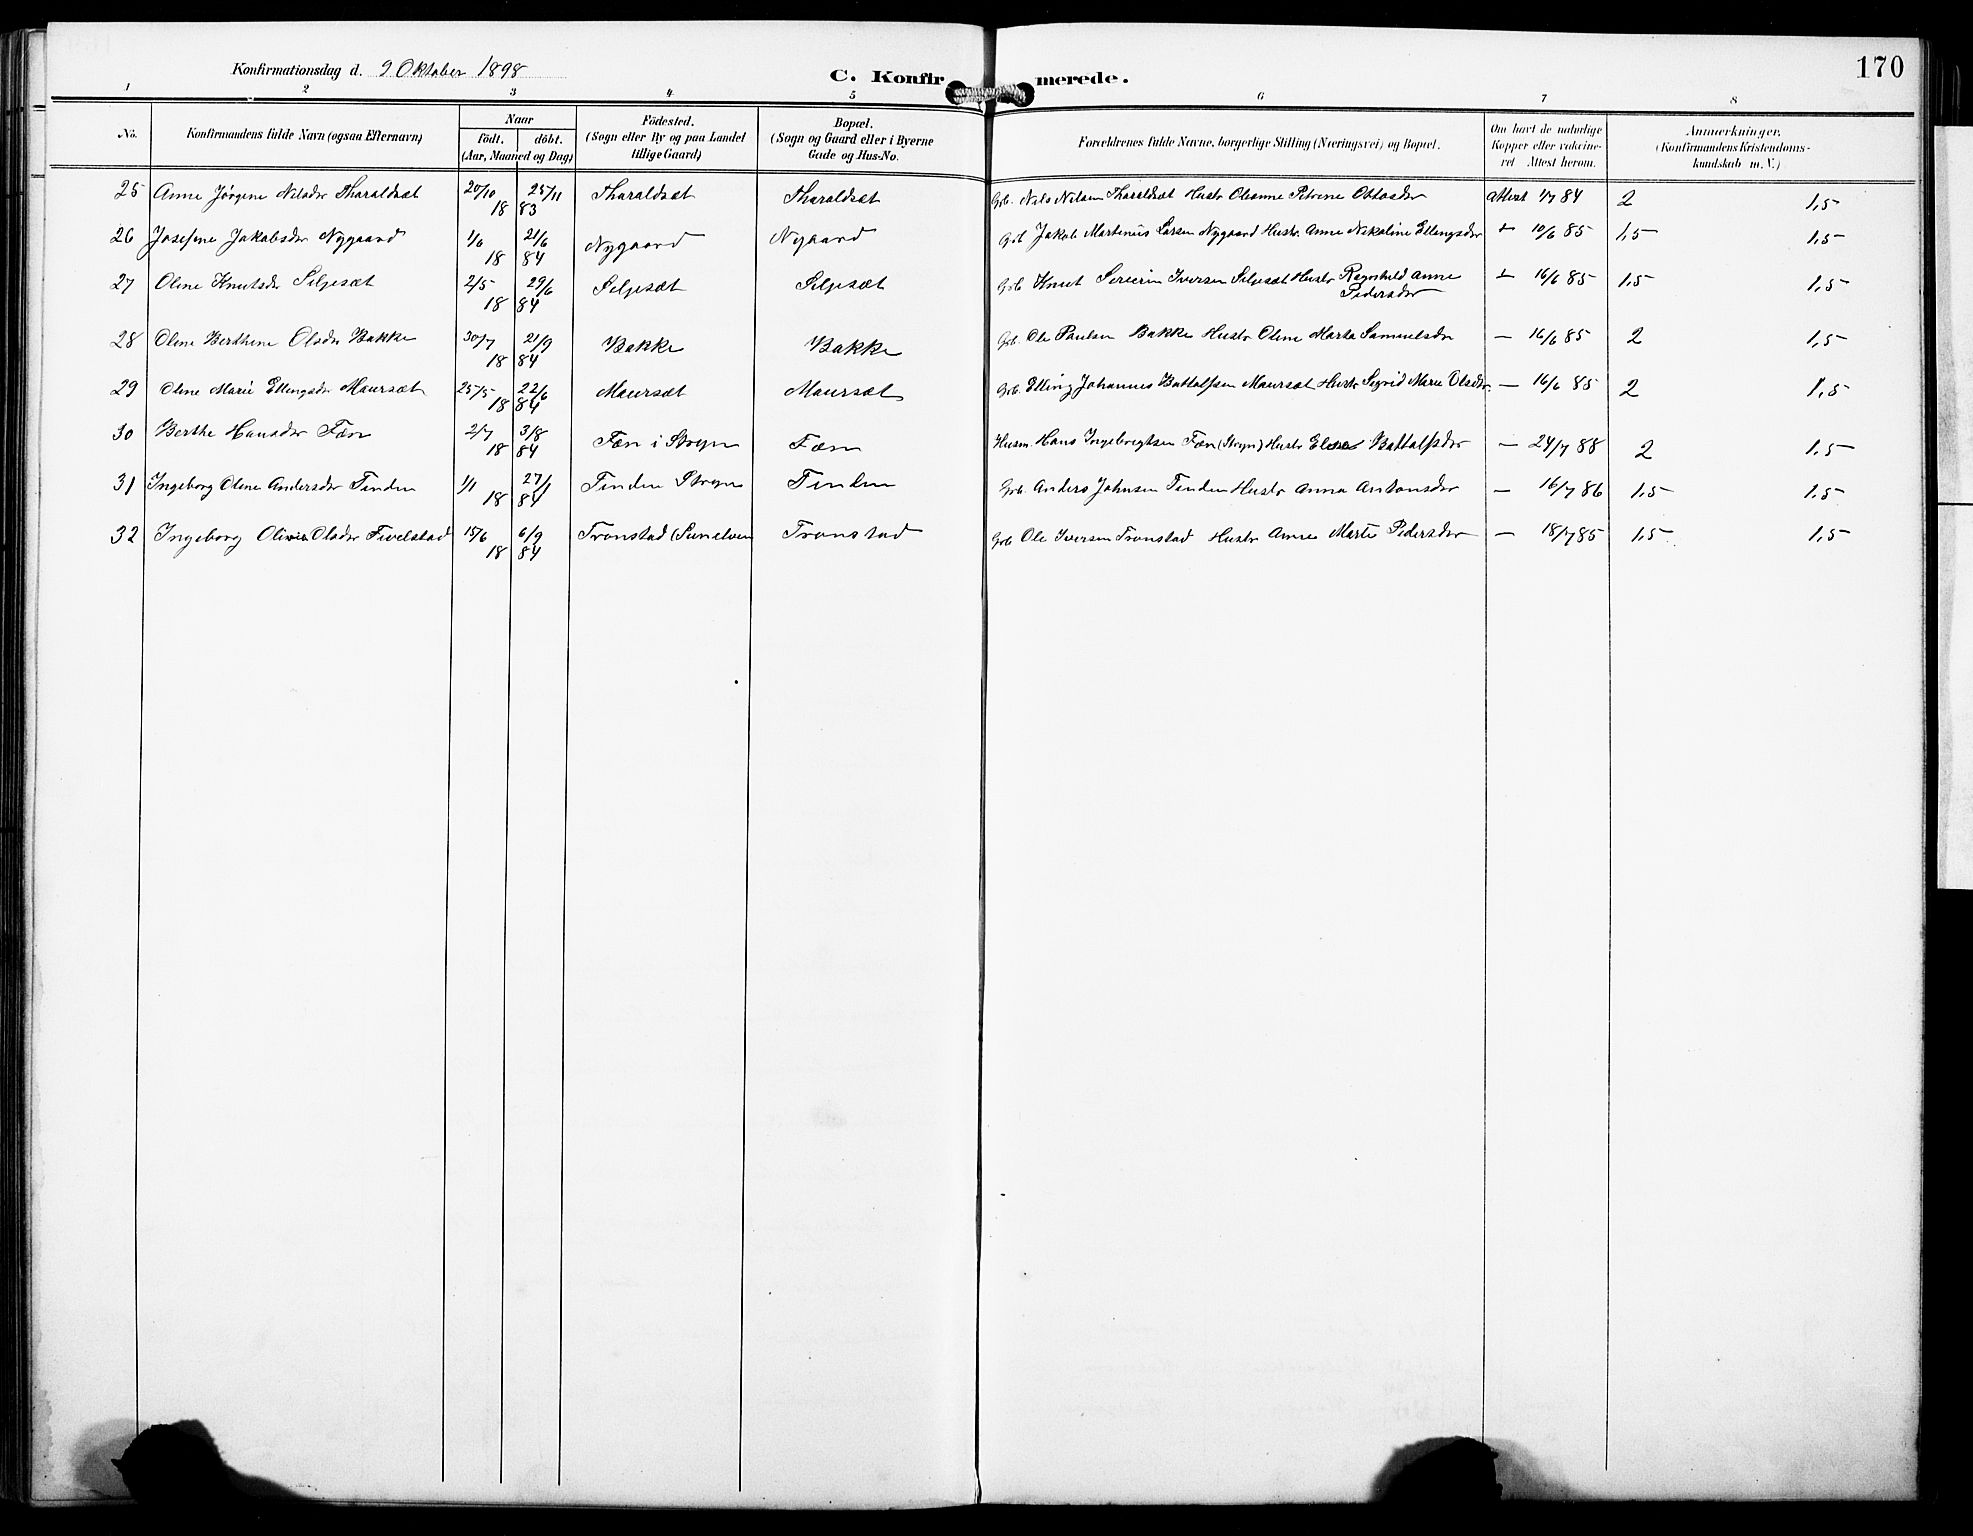 170
Konfirmationsdag d. 9 Oktober 1898
C. Konfirmerede.
1 2 3 4 5 6 7 8
No. Konfirmandens fulde Navn (ogsaa Efternavn) Naar födt. döbt. (Aar, Maaned og Dag) Födested. (Sogn eller By og paa Landet tillige Gaard) Bopæl. (Sogn og Gaard eller i Byerne Gade og Hus-No. Forældrenes fulde Navne, borgerlige Stilling (Næringsvei) og Bopæl. Om havt de naturlige Kopper eller vakcineret Attest herom. Anmærkninger. (Konfirmandens Kristendomskundskab m. V.)
25 Anne Jørgine Nilsdr Tharaldsæt 20/10 25/11 1883 Tharaldsæt Tharaldsæt Grb. Nils Nilsen Tharaldsæt Hustr Olianne Petrine Ottosdr Attest 1/7 84 2 1,5
26 Josefine Jakobsdr Nygaard 1/6 21/6 1884 Nygaard Nygaard Grb Jakob Martinus Larsen Nygaard Hustr. Anne Nikoline Ellingsdr + 10/6 85 1,5 1,5
27 Oline Knutsdr Siljesæt 2/5 29/6 1884 Siljesæt Siljesæt Grb Knut Severin Iversen Siljesæt Hustr Ragnhild Anne Pedersdr + 16/6 85 1,5 1,5
28 Oline Berthine Olsdr Bakke 30/7 21/9 1884 Bakke Bakke Grb. Ole Paulsen Bakke Hustr Oline Marta Samuelsdr — 16/6 85 2 1,5
29 Oline Marie Ellingsdr Maursæt 25/5 22/6 1884 Maursæt Maursæt Grb. Elling Johannes Battolfsen Maursæt Hustr Sigrid Marie Olsdr. — 16/6 85 2 1,5
30 Berthe Hansdr Fæn 2/7 3/8 1884 Fæn i Stryn Fæn Husm. Hans Ingebrigtsen Fæn (Stryn) Hustr Battolfsdr — 24/7 88 2 1,5
31 Ingeborg Oline Andersdr Tinden 1/1 27/1 1884 Tinden Stryn Tinden Grb. Anders Johnsen Tinden Hustr Anna Antonsdr — 16/7 86 1,5 1,5
32 Ingeborg Olsdr Fivelstad 15/6 6/9 1884 Tronstad (Sunelven Tronstad Grb Ole Iversen Tronstad Hustr Anne Marte Pedersdr — 18/7 85 1,5 1,5